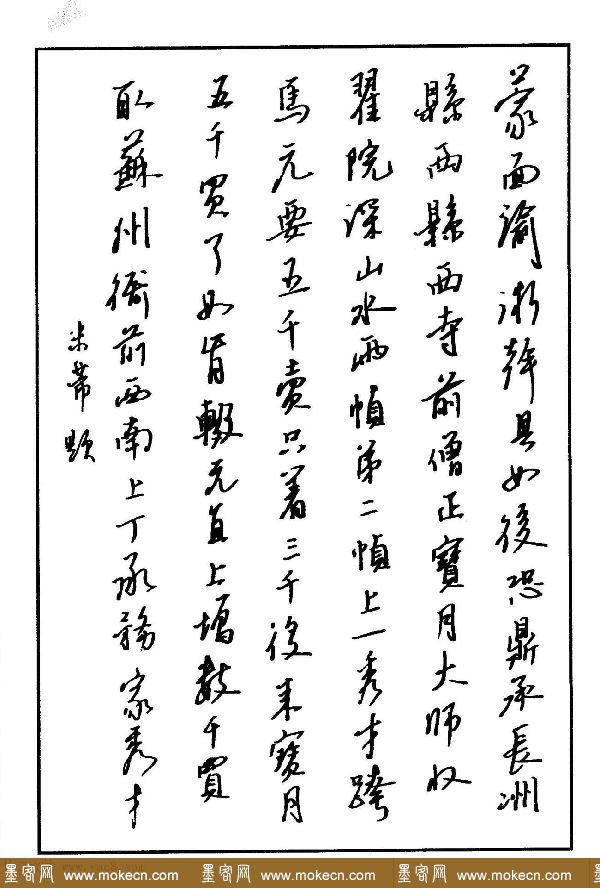 蒙面諭浙幹具如後恐鼎承長洲
縣而縣西寺前僧正寶月大師收
翟院深山水兩幀第二幀上一秀才跨
馬元要五千賣只著三千後來寶月
五千買了如肯輟元直上增數千買
取蘇州衙前西南上丁承務家秀才
米芾題
墨客网 www.mokecn.com 墨客网 www.mokecn.com 墨客网 www.mokecn.com